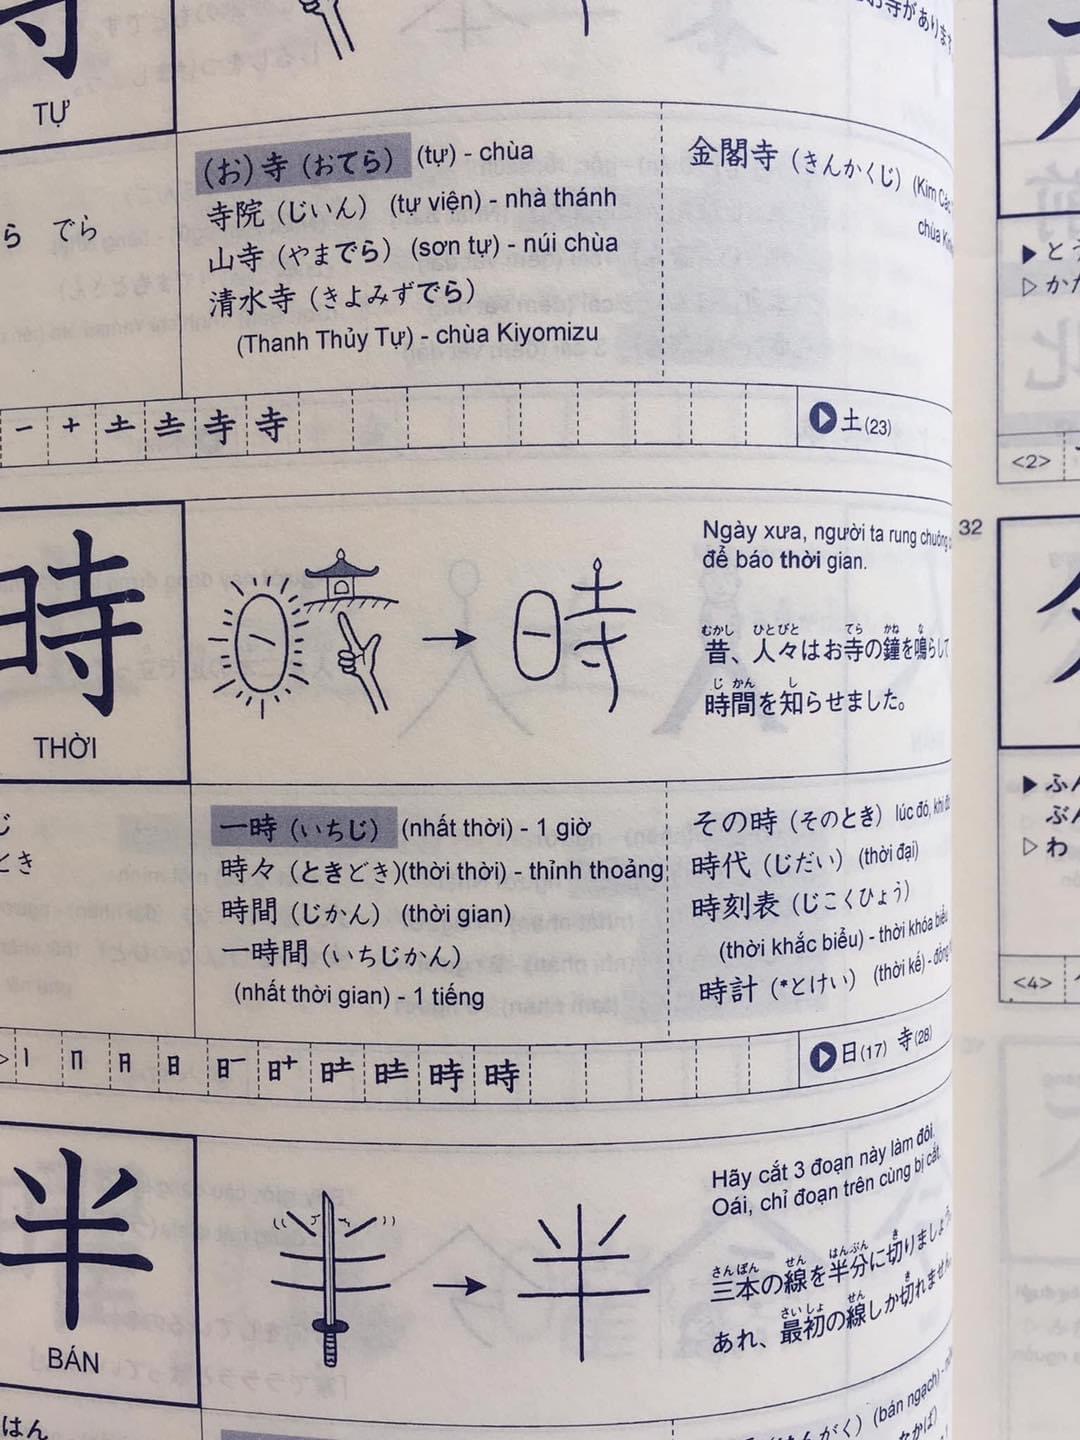 TỰ
(お)寺 (おてら) (tự) - chùa
寺院 (じいん) (tự viện) - nhà thánh
山寺 (やまでら) (sơn tự) - núi chùa
清水寺 (きよみずでら)
(Thanh Thủy Tự) - chùa Kiyomizu
金閣寺 (きんかくじ) (Kim Các
chùa
でら
一 十 土 寺 寺
土(23)
時
THỜI
Ngày xưa, người ta rung chuông
để báo thời gian.
むかし ひとびと てら かね な
昔、人々はお寺の鐘を鳴らして
じ かん し
時間を知らせました。
とき
一時 (いちじ) (nhất thời) - 1 giờ
時々 (ときどき)(thời thời) - thỉnh thoảng
時間 (じかん) (thời gian)
一時間 (いちじかん)
(nhất thời gian) - 1 tiếng
その時 (そのとき) lúc đó, khi
時代 (じだい) (thời đại)
時刻表 (じこくひょう)
(thời khắc biểu) - thời khóa biểu
時計 (*とけい) (thời kế) - đồng
丨 冂 月 日 時 時
日(17) 寺(28)
半
BÁN
Hãy cắt 3 đoạn này làm đôi.
Oái, chỉ đoạn trên cùng bị cắt.
さんぼん せん はんぶん き
三本の線を半分に切りましょう
さいしょ せん き
あれ、最初の線しか切れません
はん
(bán ngạch) -
<2>
32
ふん
ぶん
わ
<4>